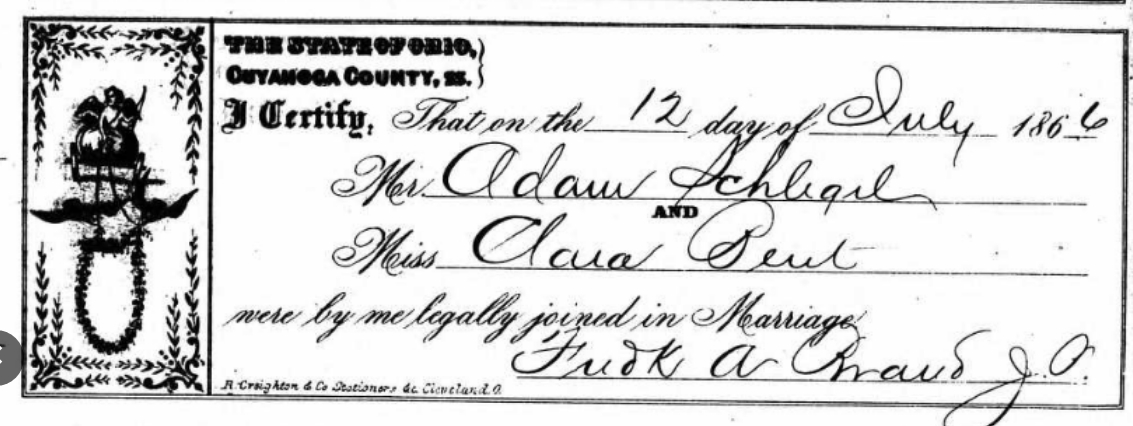 THE STATE OF OHIO,
CUYAHOGA COUNTY, ss.
I Certify, That on the 12 day of July 1866
Mr. Adam Schlegel
AND
Miss Clara Bent
were by me legally joined in Marriage
Fredk A Brand J.P.
R. Creighton & Co Stationers &c. Cleveland. O.